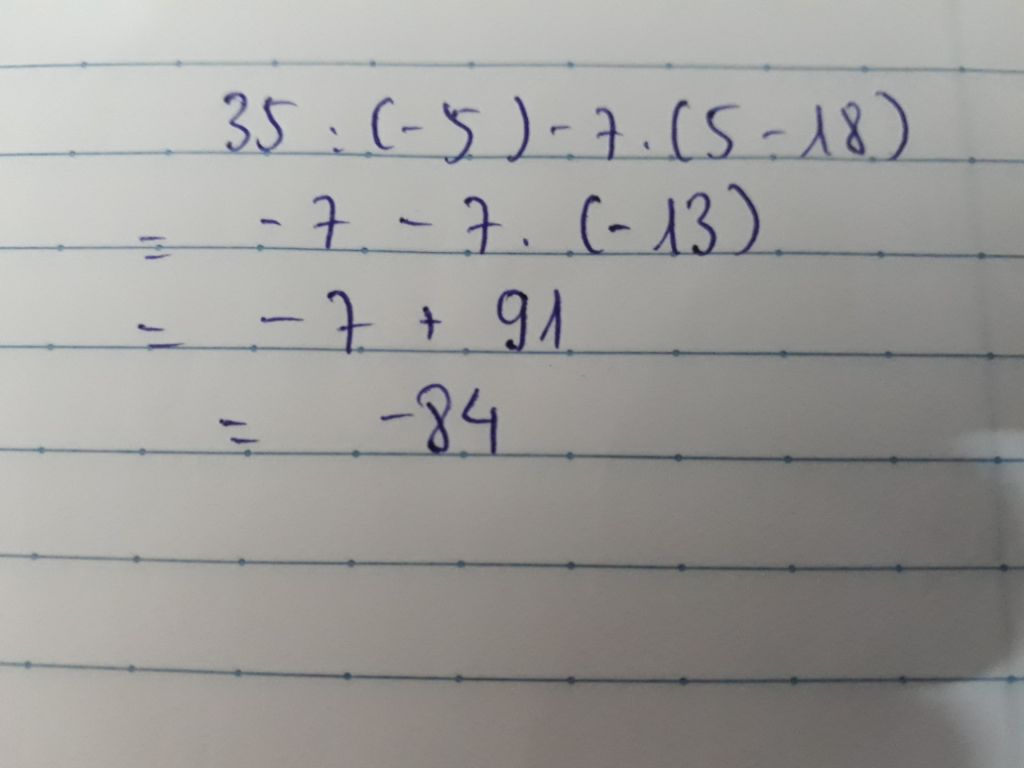 35 : (-5) - 7 . (5 - 18)
= -7 - 7 . (-13)
= -7 + 91
= -84